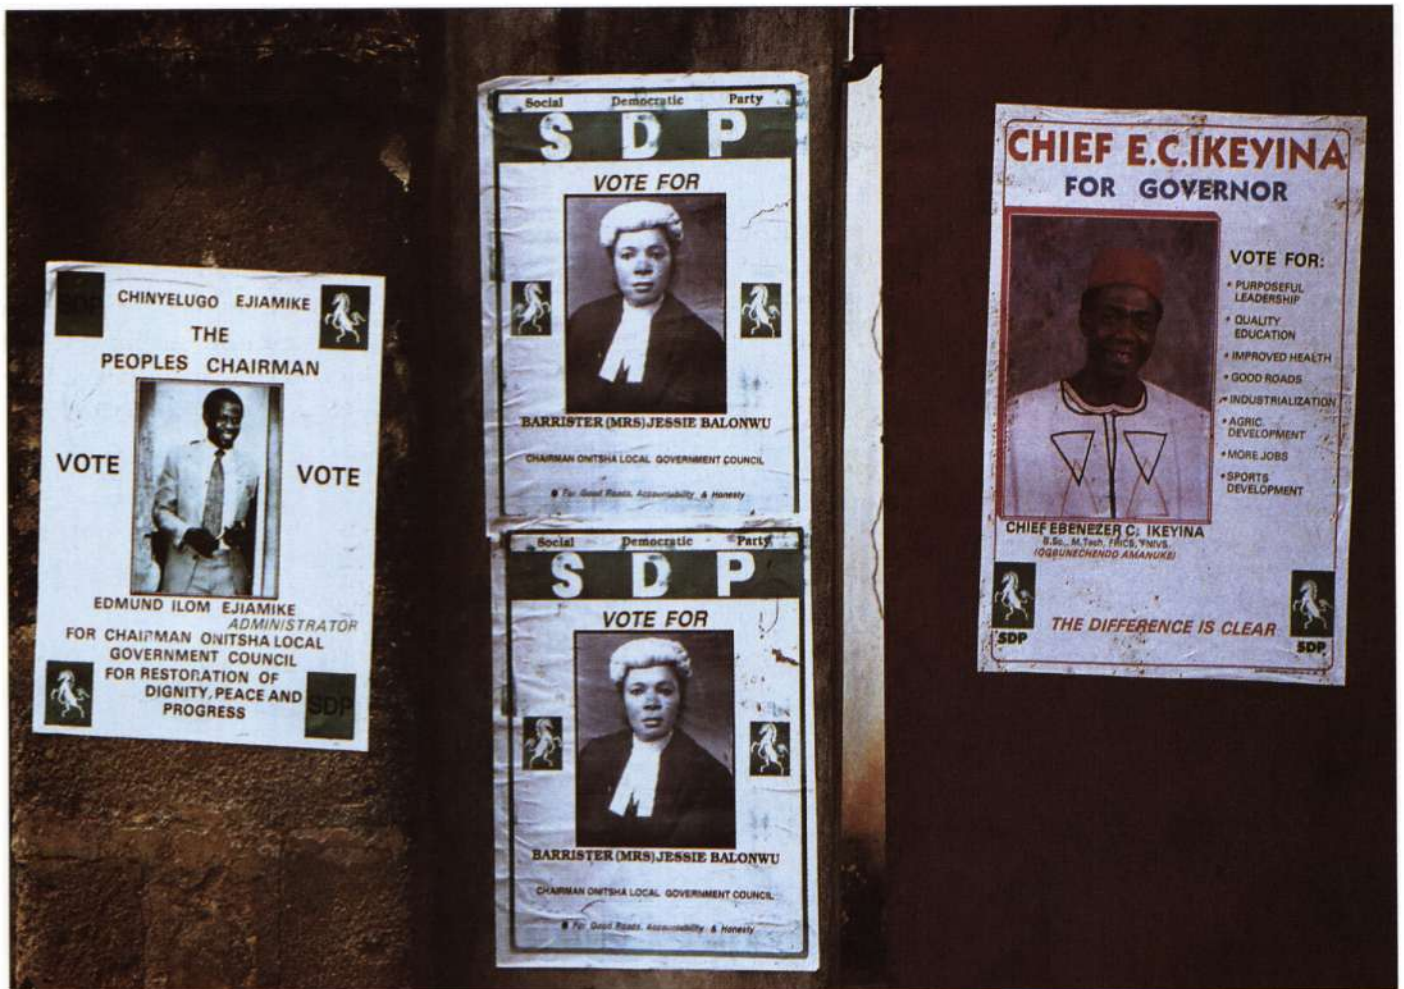 SDP
CHINYELUGO EJIAMIKE
THE
PEOPLES CHAIRMAN
VOTE
VOTE
EDMUND ILOM EJIAMIKE
ADMINISTRATOR
FOR CHAIRMAN ONITSHA LOCAL
GOVERNMENT COUNCIL
FOR RESTORATION OF
DIGNITY, PEACE AND
PROGRESS
SDP
Social Democratic Party
SDP
VOTE FOR
BARRISTER (MRS) JESSIE BALONWU
CHAIRMAN ONITSHA LOCAL GOVERNMENT COUNCIL
For Good Roads, Accountability & Honesty
Social Democratic Party
SDP
VOTE FOR
BARRISTER (MRS) JESSIE BALONWU
CHAIRMAN ONITSHA LOCAL GOVERNMENT COUNCIL
For Good Roads, Accountability & Honesty
CHIEF E.C.IKEYINA
FOR GOVERNOR
VOTE FOR:
• PURPOSEFUL
LEADERSHIP
• QUALITY
EDUCATION
• IMPROVED HEALTH
• GOOD ROADS
• INDUSTRIALIZATION
• AGRIC.
DEVELOPMENT
• MORE JOBS
• SPORTS
DEVELOPMENT
CHIEF EBENEZER C. IKEYINA
B.Sc., M.Tech, FRICS, FNIVS.
(OGBUNECHENDO AMANUKE)
THE DIFFERENCE IS CLEAR
SDP
SDP